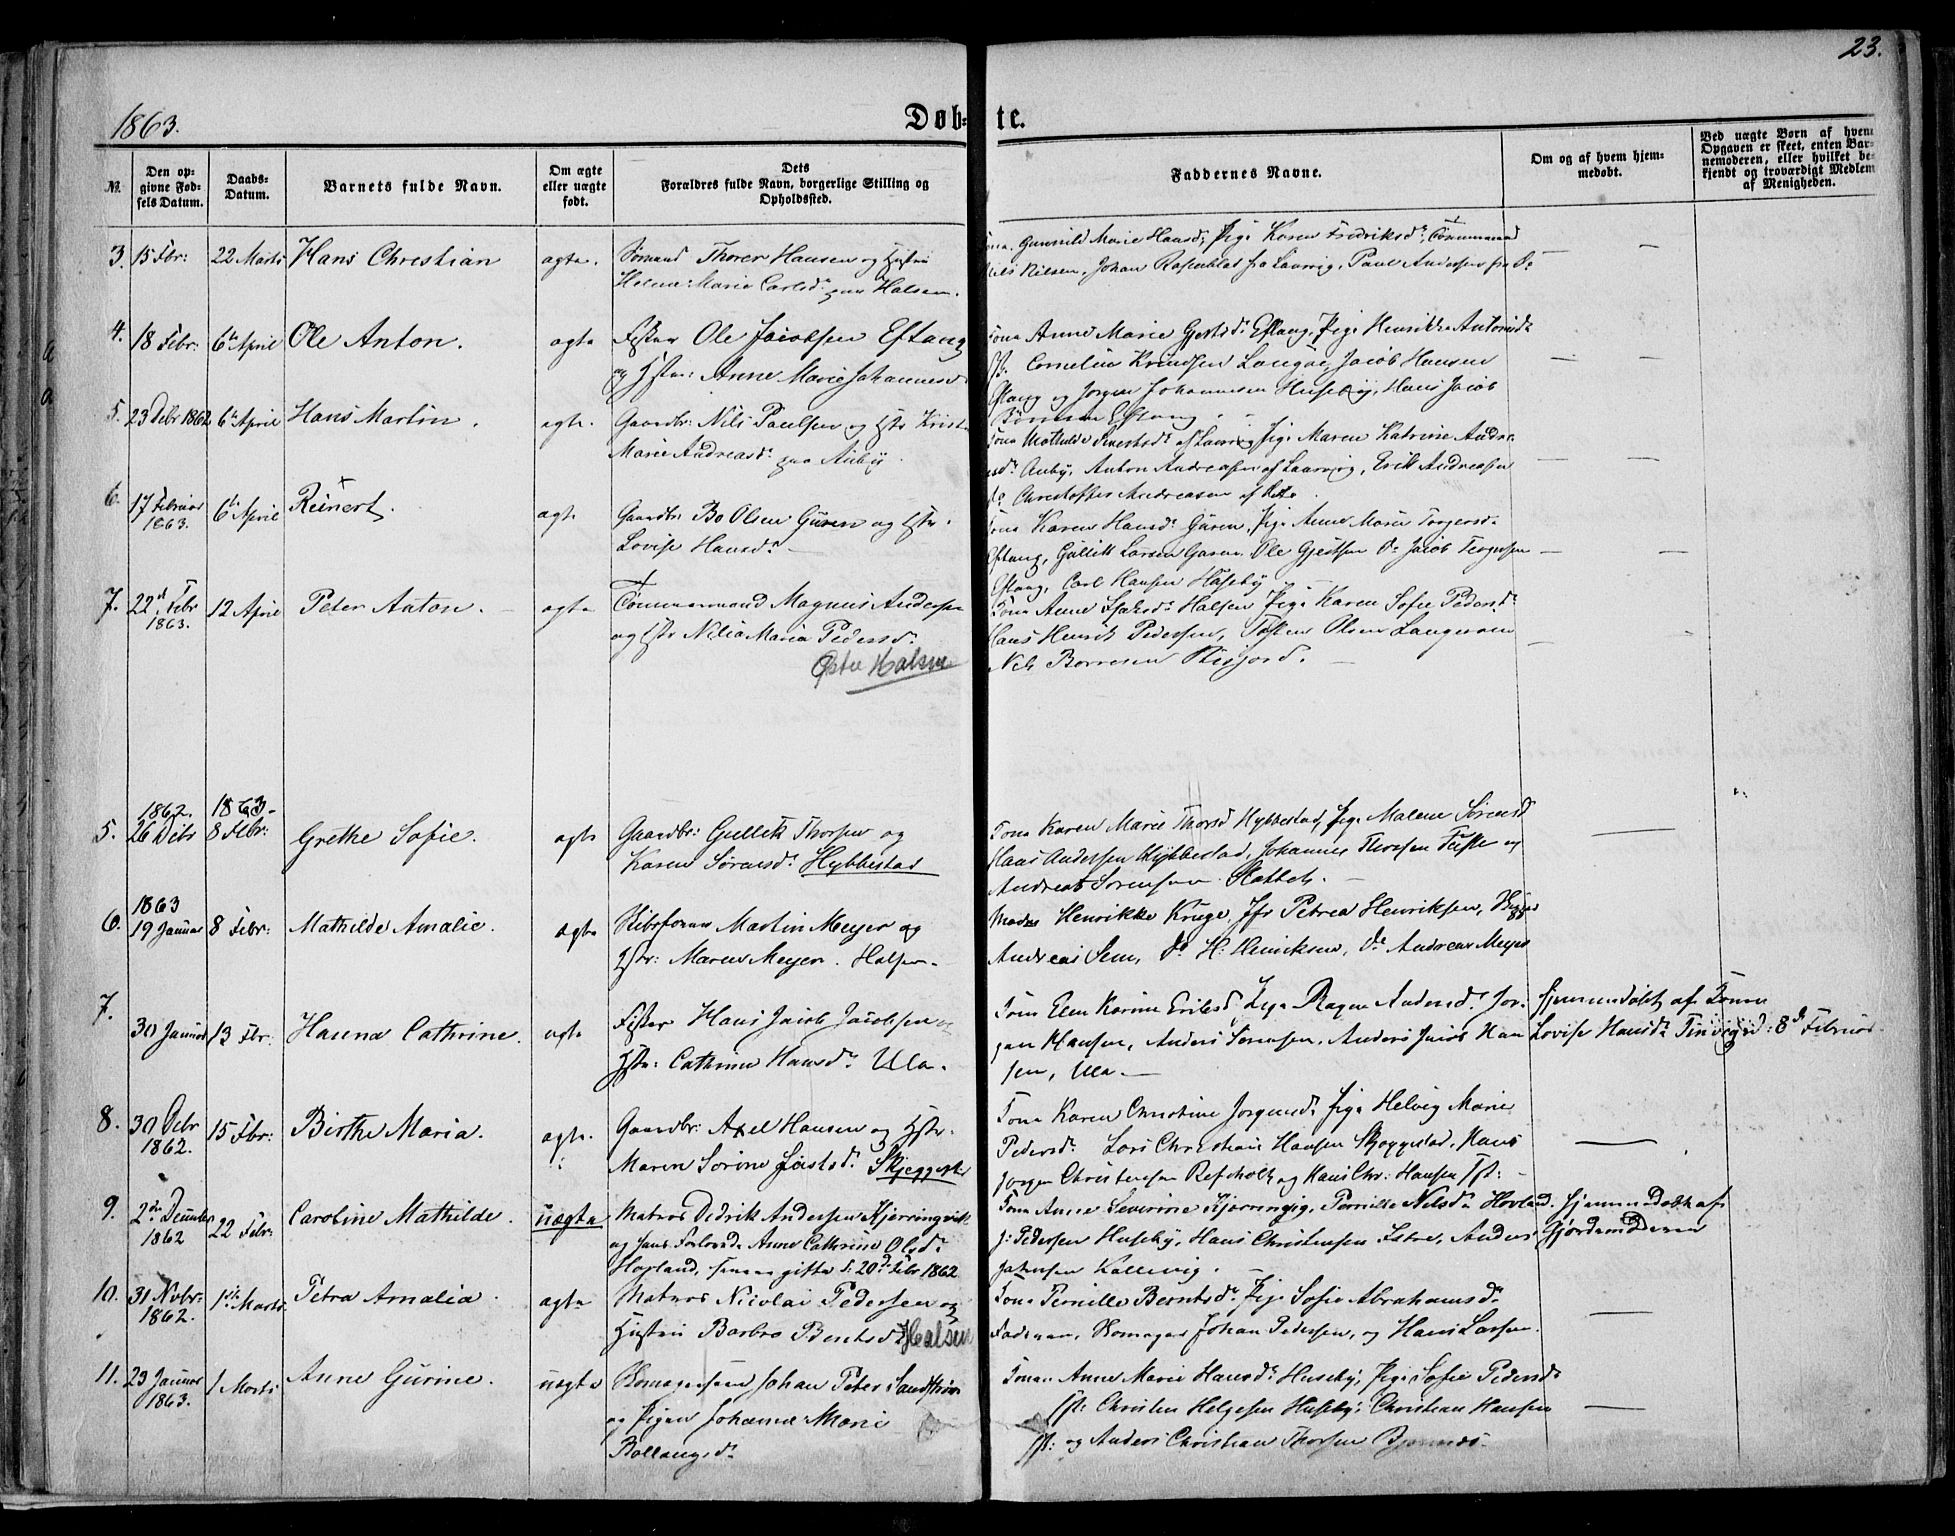 23.
1863.
Døb- te.
№.
Den op-
givne Fød-
sels Datum.
Daabs-
Datum.
Barnets fulde Navn.
Om ægte
eller uægte
født.
Dets
Forældres fulde Navn, borgerlige Stilling og
Opholdssted.
Faddernes Navne.
Om og af hvem hjem-
medøbt.
Ved uægte Børn af hvem
Opgaven er skeet, enten Bar-
nemoderen, eller hvilket be-
kjendt og troværdigt Medlem
af Menigheden.
3. 15 Fbr: 22 Marts Hans Christian ægte. Sømand Thorer Hansen og Hustru
Helene Marie Carlsd. paa Halsen.
Gunnild Marie Hansd, Pige Karen Fredriksd, Tømmermand
Nils Nilsen, Johan Rosenblad fra Laurvig, Paul Andersen fra Do
4. 18 Febr: 6te April Ole Anton. ægte Fisker Ole Jacobsen Eftang
og Hstr: Anne Marie Johannesd
Kone Anne Marie Gjertsd. Eftang, Pige Henrikke Antonisd.
Cornelius Knudsen Langøe, Jacob Hansen
Eftang og Jørgen Johannesen Huseby, Hans Jacob
Eftang.
5. 23 Debr 1862 6te April Hans Martin. ægte. Gaardbr: Nils Paulsen og Hstr
Marie Andreasd. paa Auby.
Kone Mathilde af Laurvig, Pige Maren Katrine Andre
asd. Auby, Anton Andreasen af Laurvig, Erik Andreasen
do Christoffer Andreasen af Do.
6. 17 Februar
1863. 6te April Reinert. ægte Gaardbr: Bo Olsen Guren og Hstr.
Lovise Hansd.
Kone Karen Hansd. Guren, Pige Anne Marie Torgersd.
Eftang, Gullik Larsen Guren, Ole Gjertsen Do Jacob
Eftang, Carl Hansen Huseby
7. 22de Febr
1863. 12 April Peter Anton. ægte Tømmermand Magnus Andersen
og Hstr Nilia Maria Pedersd.
Østre Halsen
Kone Anne Halsen Pige Karen Sofie Pedersd.
Hans Henrik Pedersen, Olsen Langeven
Nils Borresen
5. 1862.
26 Debr 1863
8 Febr: Grethe Sofie. ægte Gaardbr: Gullik Thorsen og
Karen Sørensd. Hybbestad
Kone Karen Marie Thorsd Hybbestad, Pige Malene Sørensd
Hans Andersen Hybbestad, Johannes Thorsen og
Andreas Sørensen
6. 1863
19 Januar 8 Febr: Mathilde Amalie. ægte Skibsfører Martin Meyer og
Hstr: Maren Meyer. Halsen.
Madm Henrikke Kruge, Jfr Petrea Henriksen,
Andreas Sem, Do H: Henriksen, Do Andreas Meyer
7. 30 Januar 13 Fbr. Hanna Cathrine. ægte Fisker Hans Jacob Jacobsen og
Hstr: Cathrine Hansd. Ula.
Kone Elen Karine Eriksd, Pige Ragne Andersd. Jør-
gen Hansen, Anders Sørensen, Anders Jacob Han
sen, Ula.
Hjemmedøbt af Konen
Lovise Hansd. 8de Februar
8. 30 Debr
1862. 15 Fbr: Birthe Maria. ægte. Gaardbr: Axel Hansen og Hstr.
Maren Sorine Skjeggestd
Kone Karen Christine Jørgensd. Pige Helvig Marie
Pedersd. Lars Christian Hansen Skjeggestad, Hans
Jørgen Christensen Refsholt og Hans Chr: Hansen
9. 2den December
1862 22 Febr: Caroline Mathilde. uægte Matros Didrik Andersen Kjerringvik
og hans Forlovede Anne Cathrine Olsd.
Hovland, senere gifte d. 20de Febr 1862
Kone Anne Severine Kjerringvig, Pernille Nilsd. Hovland.
Pedersen Huseby, Hans Christensen Anders
Kallevig.
Hjemmedøbt af
Gjordemoderen
10. 31 Nvbr.
1862. 1ste Marts Petra Amalia. ægte Matros Nicolai Pedersen og
Hustru Barbro Berntsd. Halsen
Kone Pernille Berntsd. Pige Sofie Abrahamsd.
Faderen, Skomager Johan Pedersen, og Hans Larsen.
11. 23 Januar
1863. 1 Marts Anne Gurine. uægte Skomagersvend Johan Peter Sandstrøm
og Pigen Johanne Marie
Bollaugsd.
Kone Anne Marie Hansd. Huseby, Pige Sofie Pedersd.
Christen Helgesen Huseby, Christian Hansen
og Anders Christian Thorsen Bjønnes.